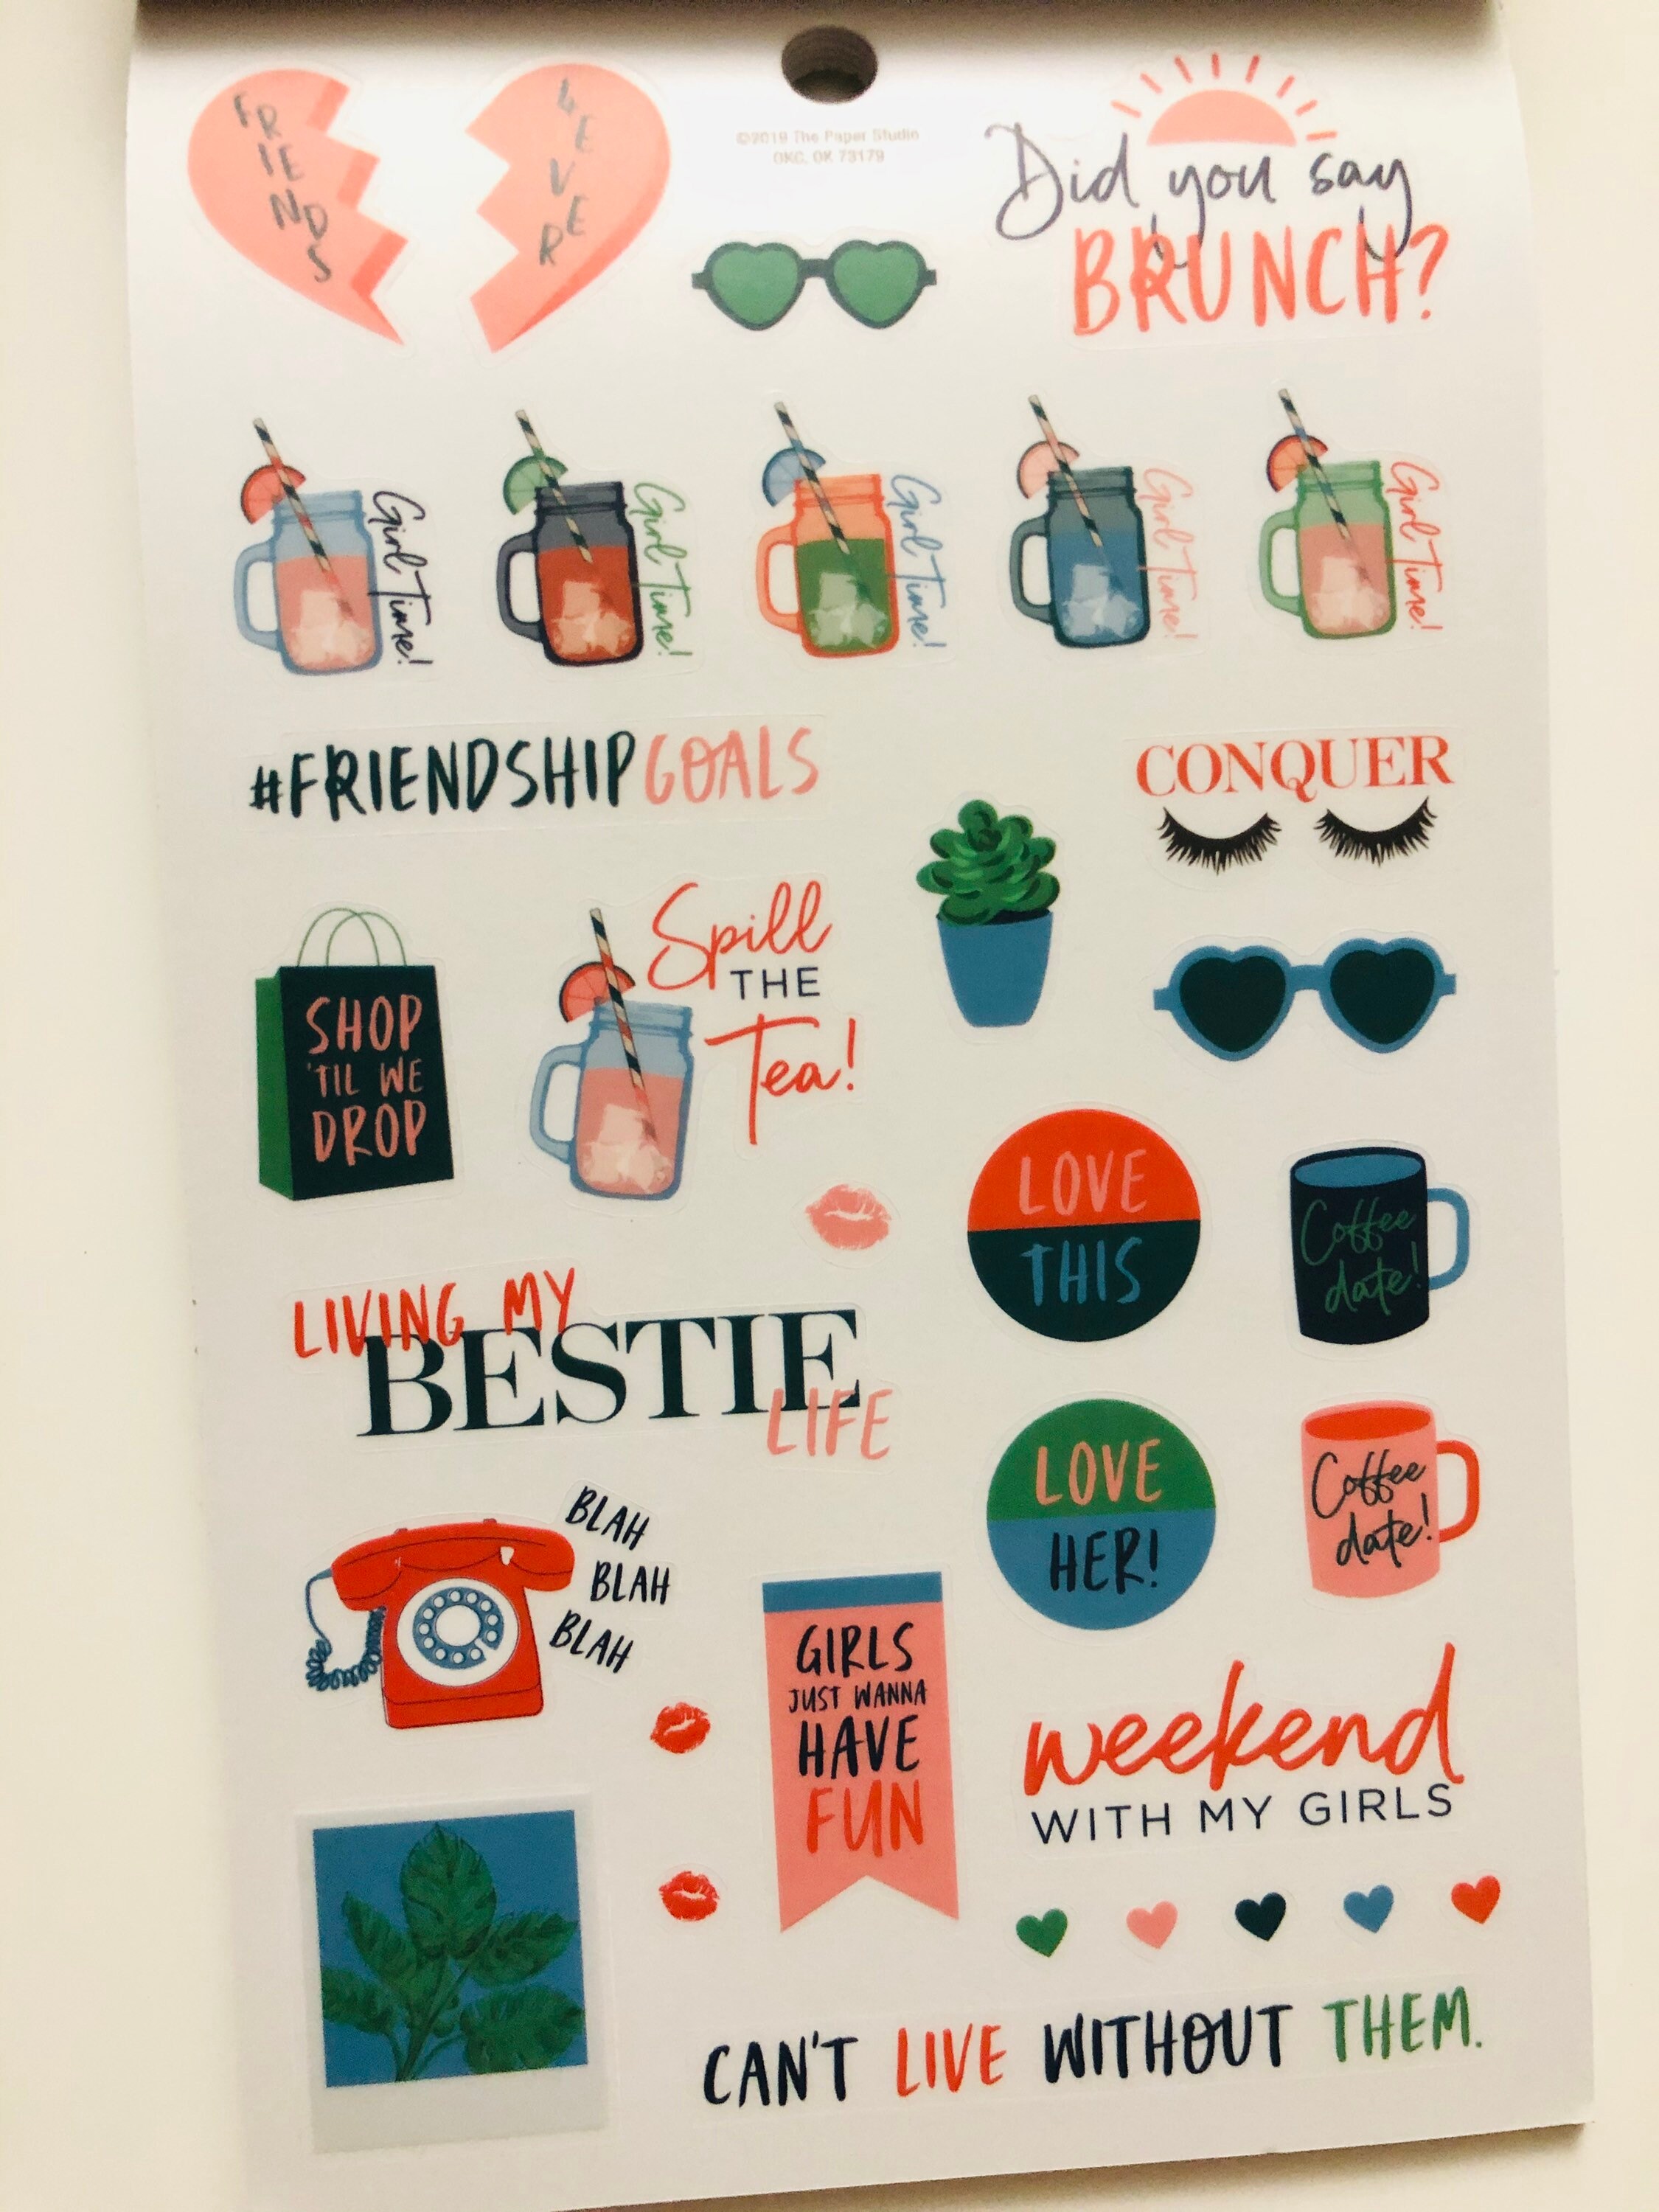 FRIENDS
4EVER
©2019 The Paper Studio
OKC, OK 73179
Did you say
BRUNCH?
Girl Time!
Girl Time!
Girl Time!
Girl Time!
Girl Time!
#FRIENDSHIPGOALS
CONQUER
SHOP
'TIL WE
DROP
Spill
THE
Tea!
LOVE
THIS
Coffee
date!
LIVING MY
BESTIE
LIFE
LOVE
HER!
Coffee
date!
BLAH
BLAH
BLAH
GIRLS
JUST WANNA
HAVE
FUN
weekend
WITH MY GIRLS
CAN'T LIVE WITHOUT THEM.